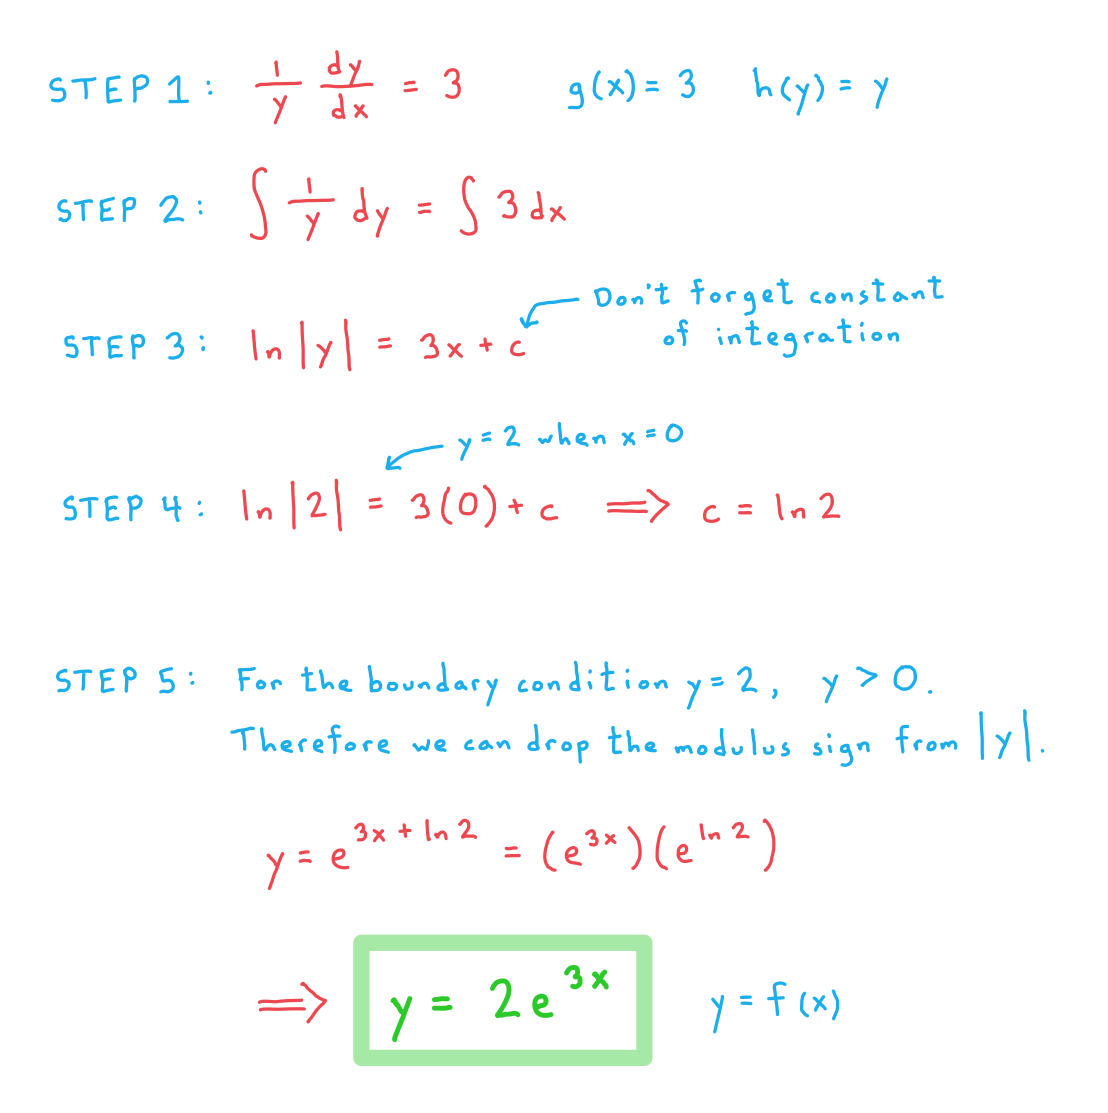 STEP 1: 1/y dy/dx = 3 g(x) = 3 h(y) = y
STEP 2: ∫ 1/y dy = ∫ 3 dx
Don't forget constant
of integration
STEP 3: ln|y| = 3x + c
y = 2 when x = 0
STEP 4: ln|2| = 3(0) + c ⟹ c = ln 2
STEP 5: For the boundary condition y = 2, y > 0.
Therefore we can drop the modulus sign from |y|.
y = e^(3x + ln 2) = (e^(3x))(e^(ln 2))
⟹ y = 2e^(3x) y = f(x)